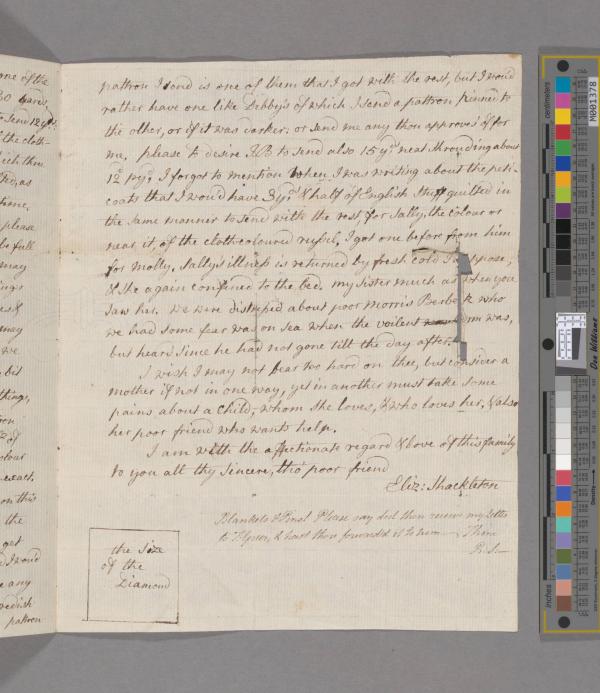 one of the
30 yards
to send 12 yds
the cloth-
time,
please
be full
may
may
we
bit
things,
of
colour
exact,
on this
the
get
I woud
any
patron
patron I send is one of them that I got with the rest, but I woud
rather have one like Debby's of which I send a patron pinned to
the other, or if it was darker, or send me any thou approves of for
me, please to desire to send also 15 yds neat Shrouding about
12d py. I forgot to mention when I was writing about the peti-
coats that I woud have 3 yds & half of English Stuff quilted in
the same manner to send with the rest, for Sally, the colour or
near it, of the cloth coloured rufsel, I got one before from him
for Molly. Sally's illness is returned by fresh cold I suppose,
& she again confined to the bed. my sister much as when you
saw her. we were distressed about poor morris who
we had some fear was on sea when the voilent was,
but heard since he had not gone till the day after.
I wish I may not bear too hard on thee, but consider a
mother if not in one way, yet in another must take some
pains about a child, whom she loves, & who loves her, & also
her poor friend who wants help.
I am with the affectionate regard & love of this family
to you all thy sincere, tho' poor friend
Eliz: Shackleton
Blankets Please say did thou receive my letter
to & hast thou forwarded it to him — Thine
the Size
of the
Diamond
centimeters
inches
Density
Don Williams
M001378